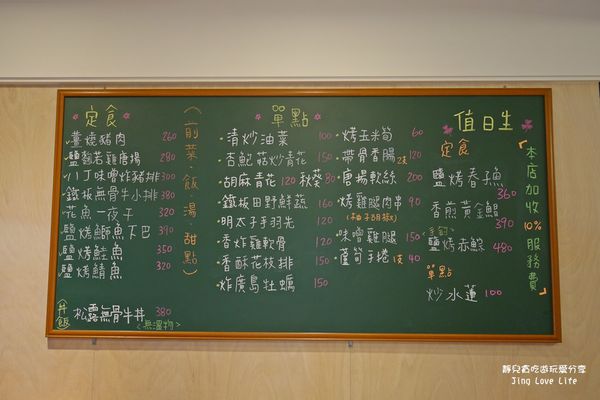 定食
薑燒豬肉 260
鹽麴若雞唐揚 280
八丁味噌炸豬排 300
鐵板無骨牛小排 380
花魚一夜干 320
鹽烤鰤魚下巴 390
鹽烤鮭魚 350
鹽烤鯖魚 320
丼飯
松露無骨牛丼 380
<無湯物>
(前菜·飯·湯·甜點)
單點
清炒油菜 100
杏鮑菇炒青花 150
胡麻青花 120 秋葵 80
鐵板田野鮮蔬 160
明太子手羽先 120
香炸雞軟骨 120
香酥花枝排 150
炸廣島牡蠣 150
烤玉米筍 60
帶骨香腸 2支 120
唐揚軟絲 200
烤雞腿肉串 90
(柚子胡椒)
味噌雞腿 150
蘆筍手捲 1支 40
值日生
定食
鹽烤香魚 360
香煎黃金鯧 390
鹽烤赤鯮 480
單點
炒水蓮 100
本店加收10%服務費
靜兒貪吃遊玩樂分享
Jing Love Life